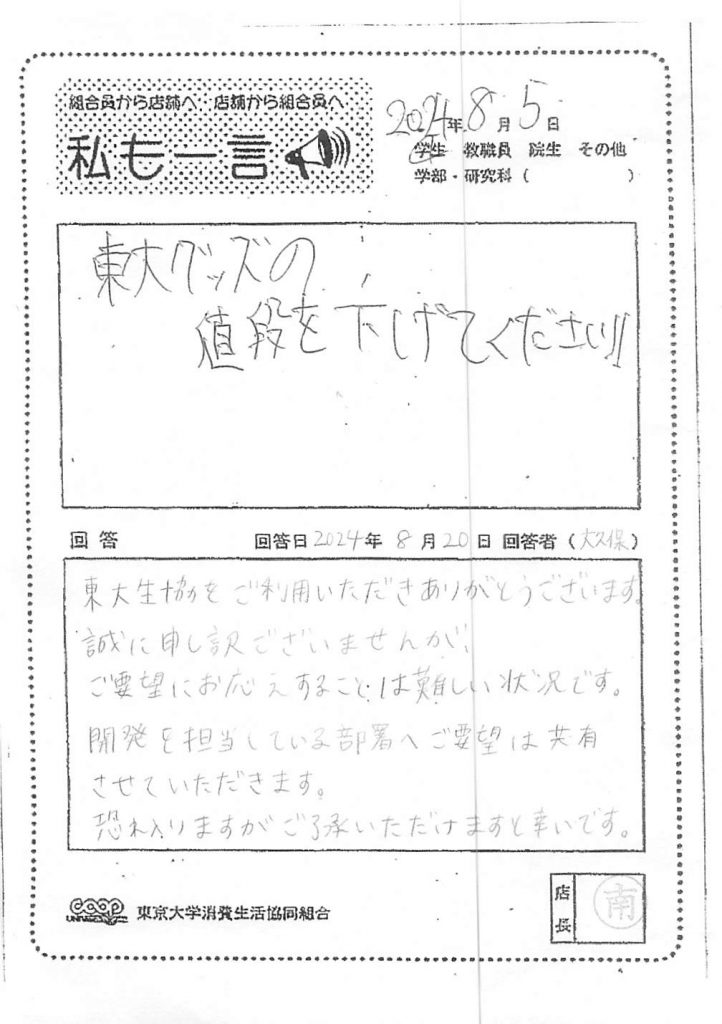 組合員から店舗へ・店舗から組合員へ
私も一言
2024年8月5日
学生 教職員 院生 その他
学部・研究科( )
東大グッズの
値段を下げてください!!
回答 回答日2024年8月20日 回答者(大久保)
東大生協をご利用いただきありがとうございます。
誠に申し訳ございませんが、
ご要望にお応えすることは難しい状況です。
開発を担当している部署へご要望は共有
させていただきます。
恐れ入りますがご了承いただけますと幸いです。
coop 東京大学消費生活協同組合
UNIV
店長
南